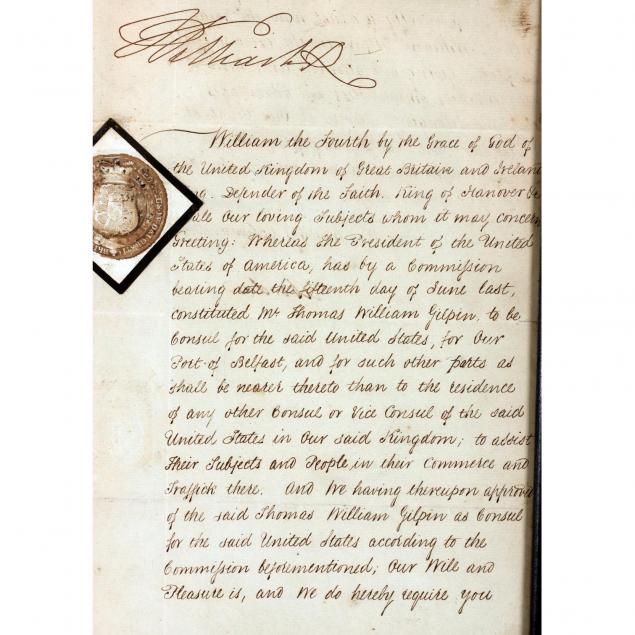 William R.
William the Fourth by the Grace of God of
the United Kingdom of Great Britain and Ireland
Defender of the Faith. King of Hanover
Our loving Subjects whom it may concern
Greeting: Whereas The President of the United
States of America, has by a Commission
bearing date the fifteenth day of June last,
constituted Mr Thomas William Gilpin, to be
Consul for the said United States, for Our
Port of Belfast, and for such other parts as
shall be nearer thereto than to the residence
of any other Consul or Vice Consul of the said
United States in Our said Kingdom; to assist
Their Subjects and People in their Commerce and
Traffick there. And We having thereupon approved
of the said Thomas William Gilpin as Consul
for the said United States according to the
Commission beforementioned; Our Will and
Pleasure is, and We do hereby require you